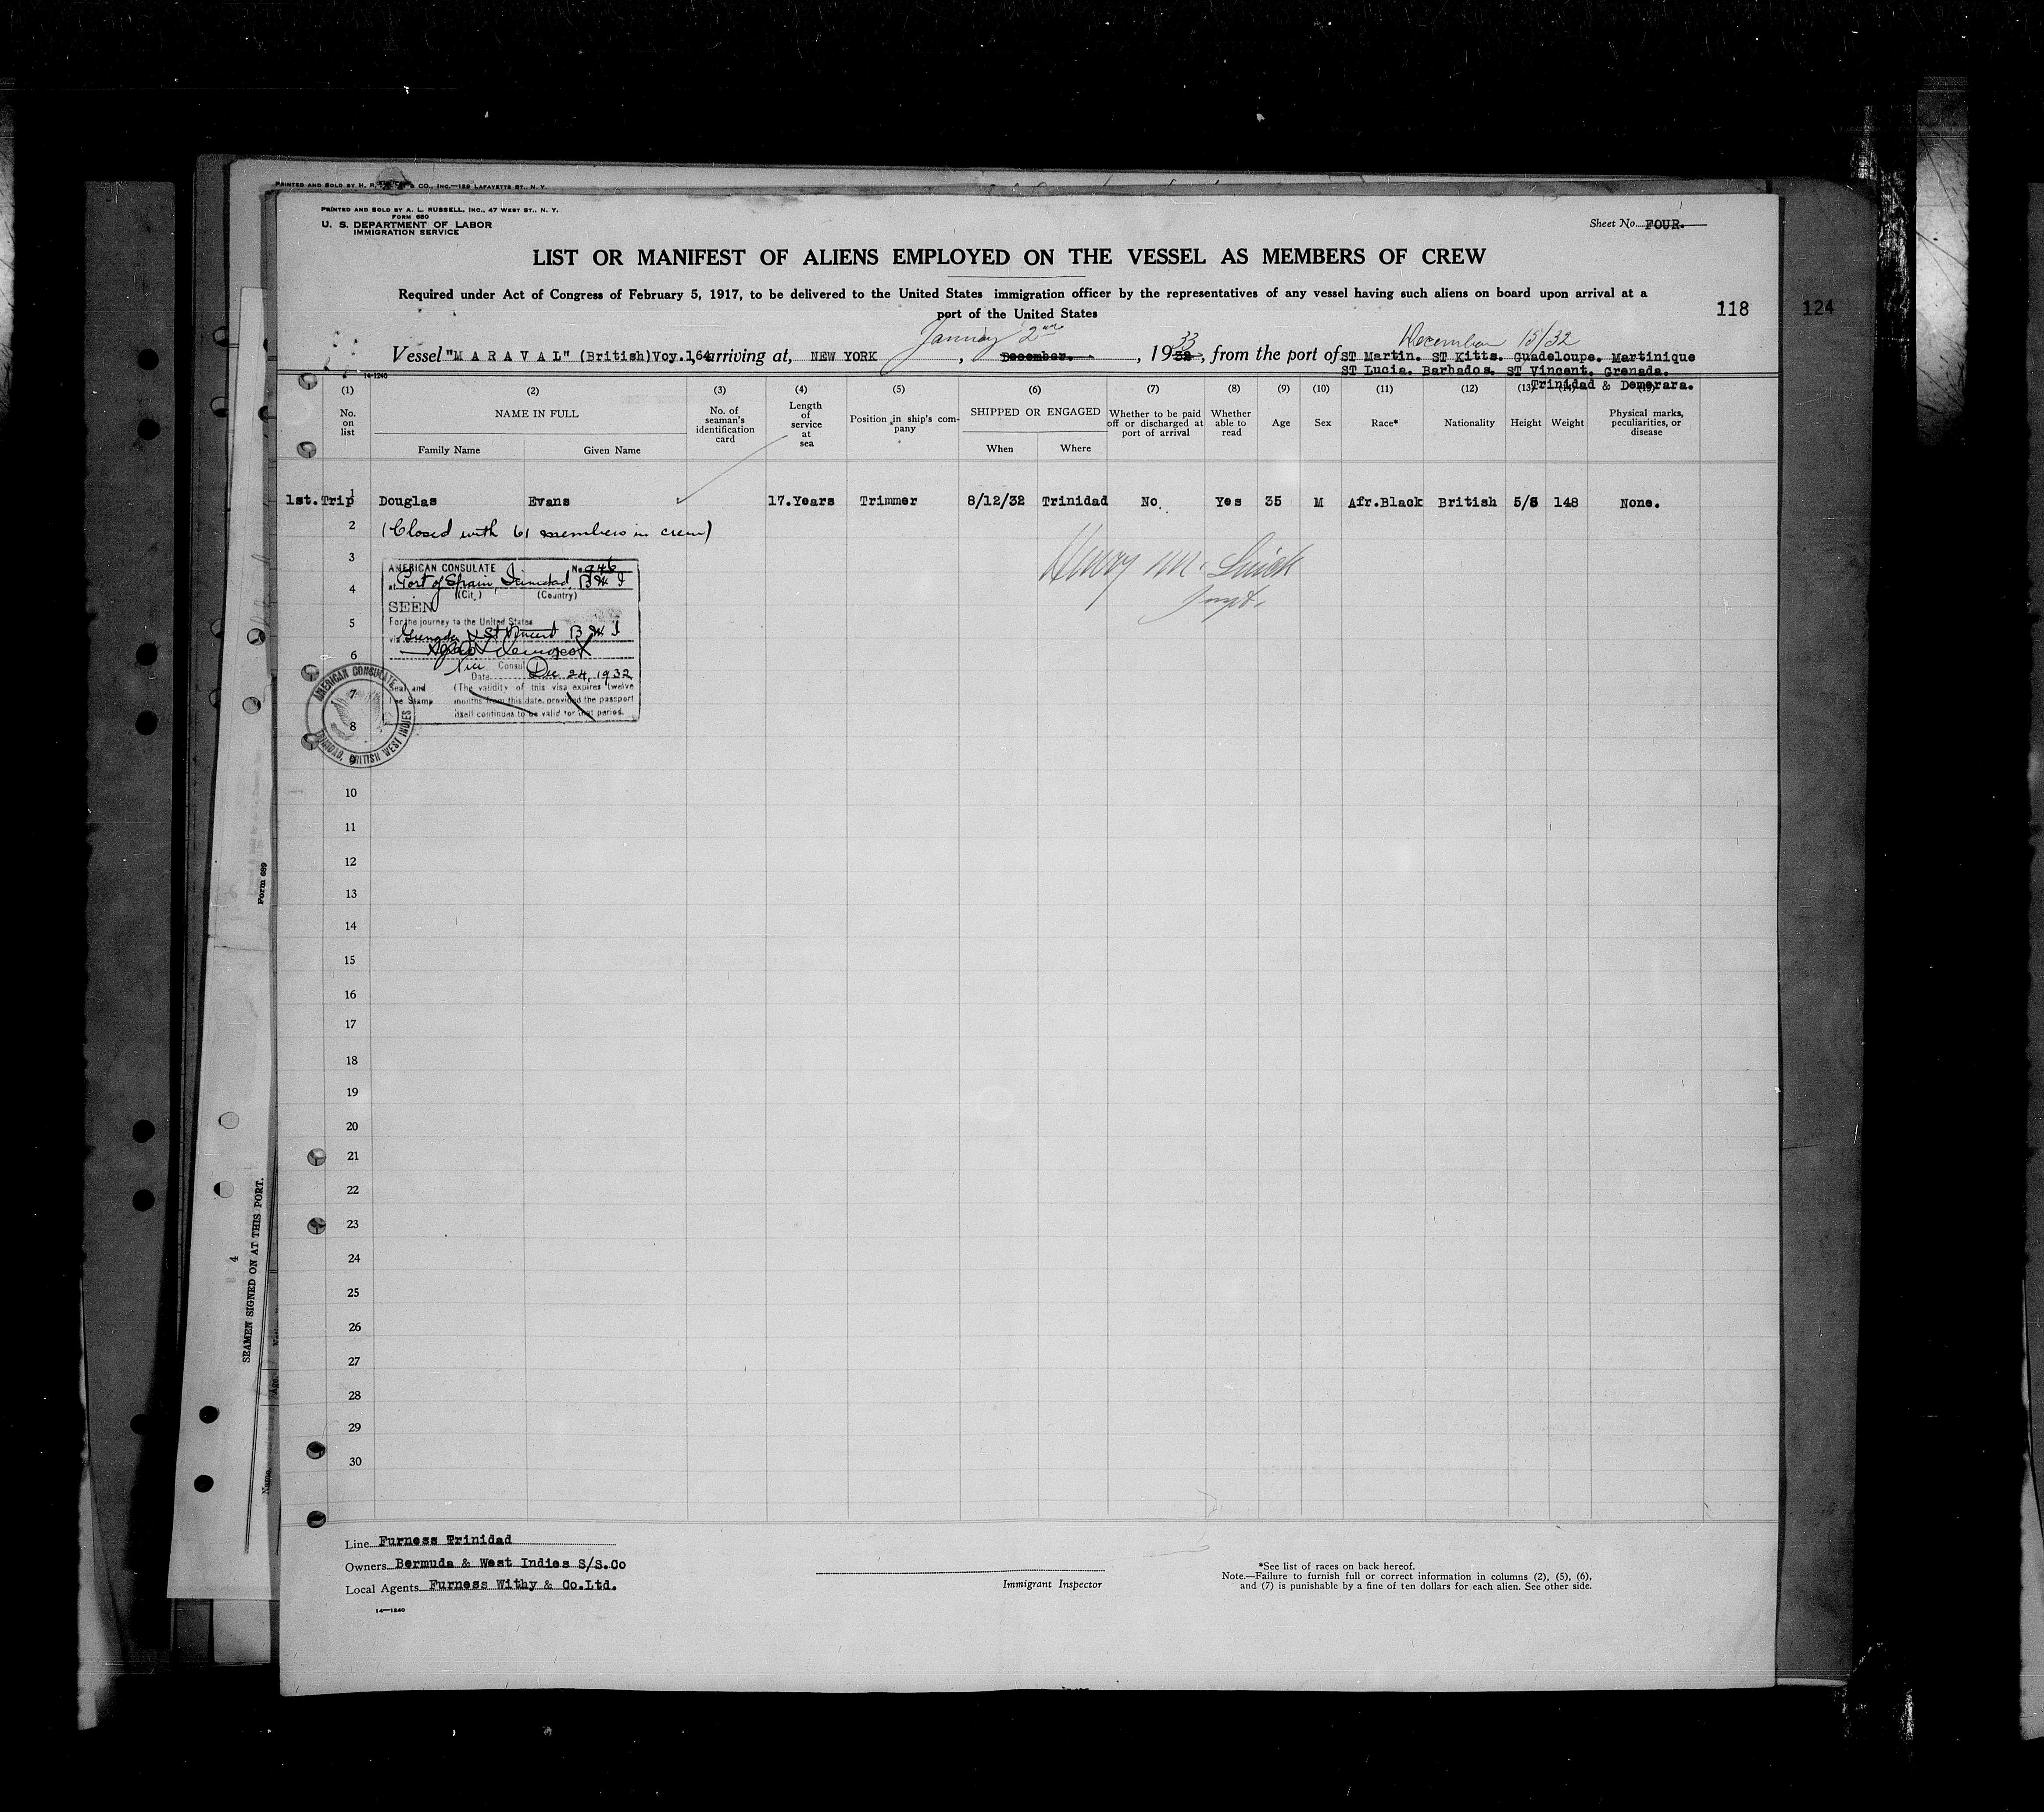 PRINTED AND SOLD BY H. R. CO., INC.—129 LAFAYETTE ST., N. Y.
PRINTED AND SOLD BY A. L. RUSSELL, INC., 47 WEST ST., N. Y.
FORM 680
U. S. DEPARTMENT OF LABOR
IMMIGRATION SERVICE
Sheet No. FOUR.
LIST OR MANIFEST OF ALIENS EMPLOYED ON THE VESSEL AS MEMBERS OF CREW
Required under Act of Congress of February 5, 1917, to be delivered to the United States immigration officer by the representatives of any vessel having such aliens on board upon arrival at a
port of the United States
118
124
January 2nd
33
December 15/32
Vessel "M A R A V A L" (British) Voy. 164 arriving at, NEW YORK, December. , 1932, from the port of ST Martin. ST Kitts. Guadeloupe. Martinique
ST Lucia. Barbados. ST Vincent. Grenada.
Trinidad & Demerara.
14-1240
(1) (2) (3) (4) (5) (6) (7) (8) (9) (10) (11) (12) (13) (14) (15)
No. on list
NAME IN FULL
Family Name Given Name
No. of seaman's identification card
Length of service at sea
Position in ship's company
SHIPPED OR ENGAGED
When Where
Whether to be paid off or discharged at port of arrival
Whether able to read
Age
Sex
Race*
Nationality
Height
Weight
Physical marks, peculiarities, or disease
1st. Trip 1 Douglas Evans 17.Years Trimmer 8/12/32 Trinidad No. Yes 35 M Afr.Black British 5/6 148 None.
2 (Closed with 61 members in crew)
3
AMERICAN CONSULATE No. 946
at Port of Spain, Trinidad, B W I
(City) (Country)
4
SEEN
5
For the journey to the United States
via Grenada & St Vincent B W I
6
Vice Consul
Date Dec 24, 1932
7
Seal and Fee Stamp
(The validity of this visa expires twelve
months from this date, provided the passport
itself continues to be valid for that period.
8
AMERICAN CONSULATE
TRINIDAD, BRITISH WEST INDIES
9
10
11
12
13
14
15
16
17
18
19
20
21
22
23
24
25
26
27
28
29
30
Line Furness Trinidad
Owners Bermuda & West Indies S/S.Co
Local Agents Furness Withy & Co.Ltd.
14—1240
Immigrant Inspector
*See list of races on back hereof.
Note.—Failure to furnish full or correct information in columns (2), (5), (6),
and (7) is punishable by a fine of ten dollars for each alien. See other side.
Form 689
4
SEAMEN SIGNED ON AT THIS PORT.
Name
Age